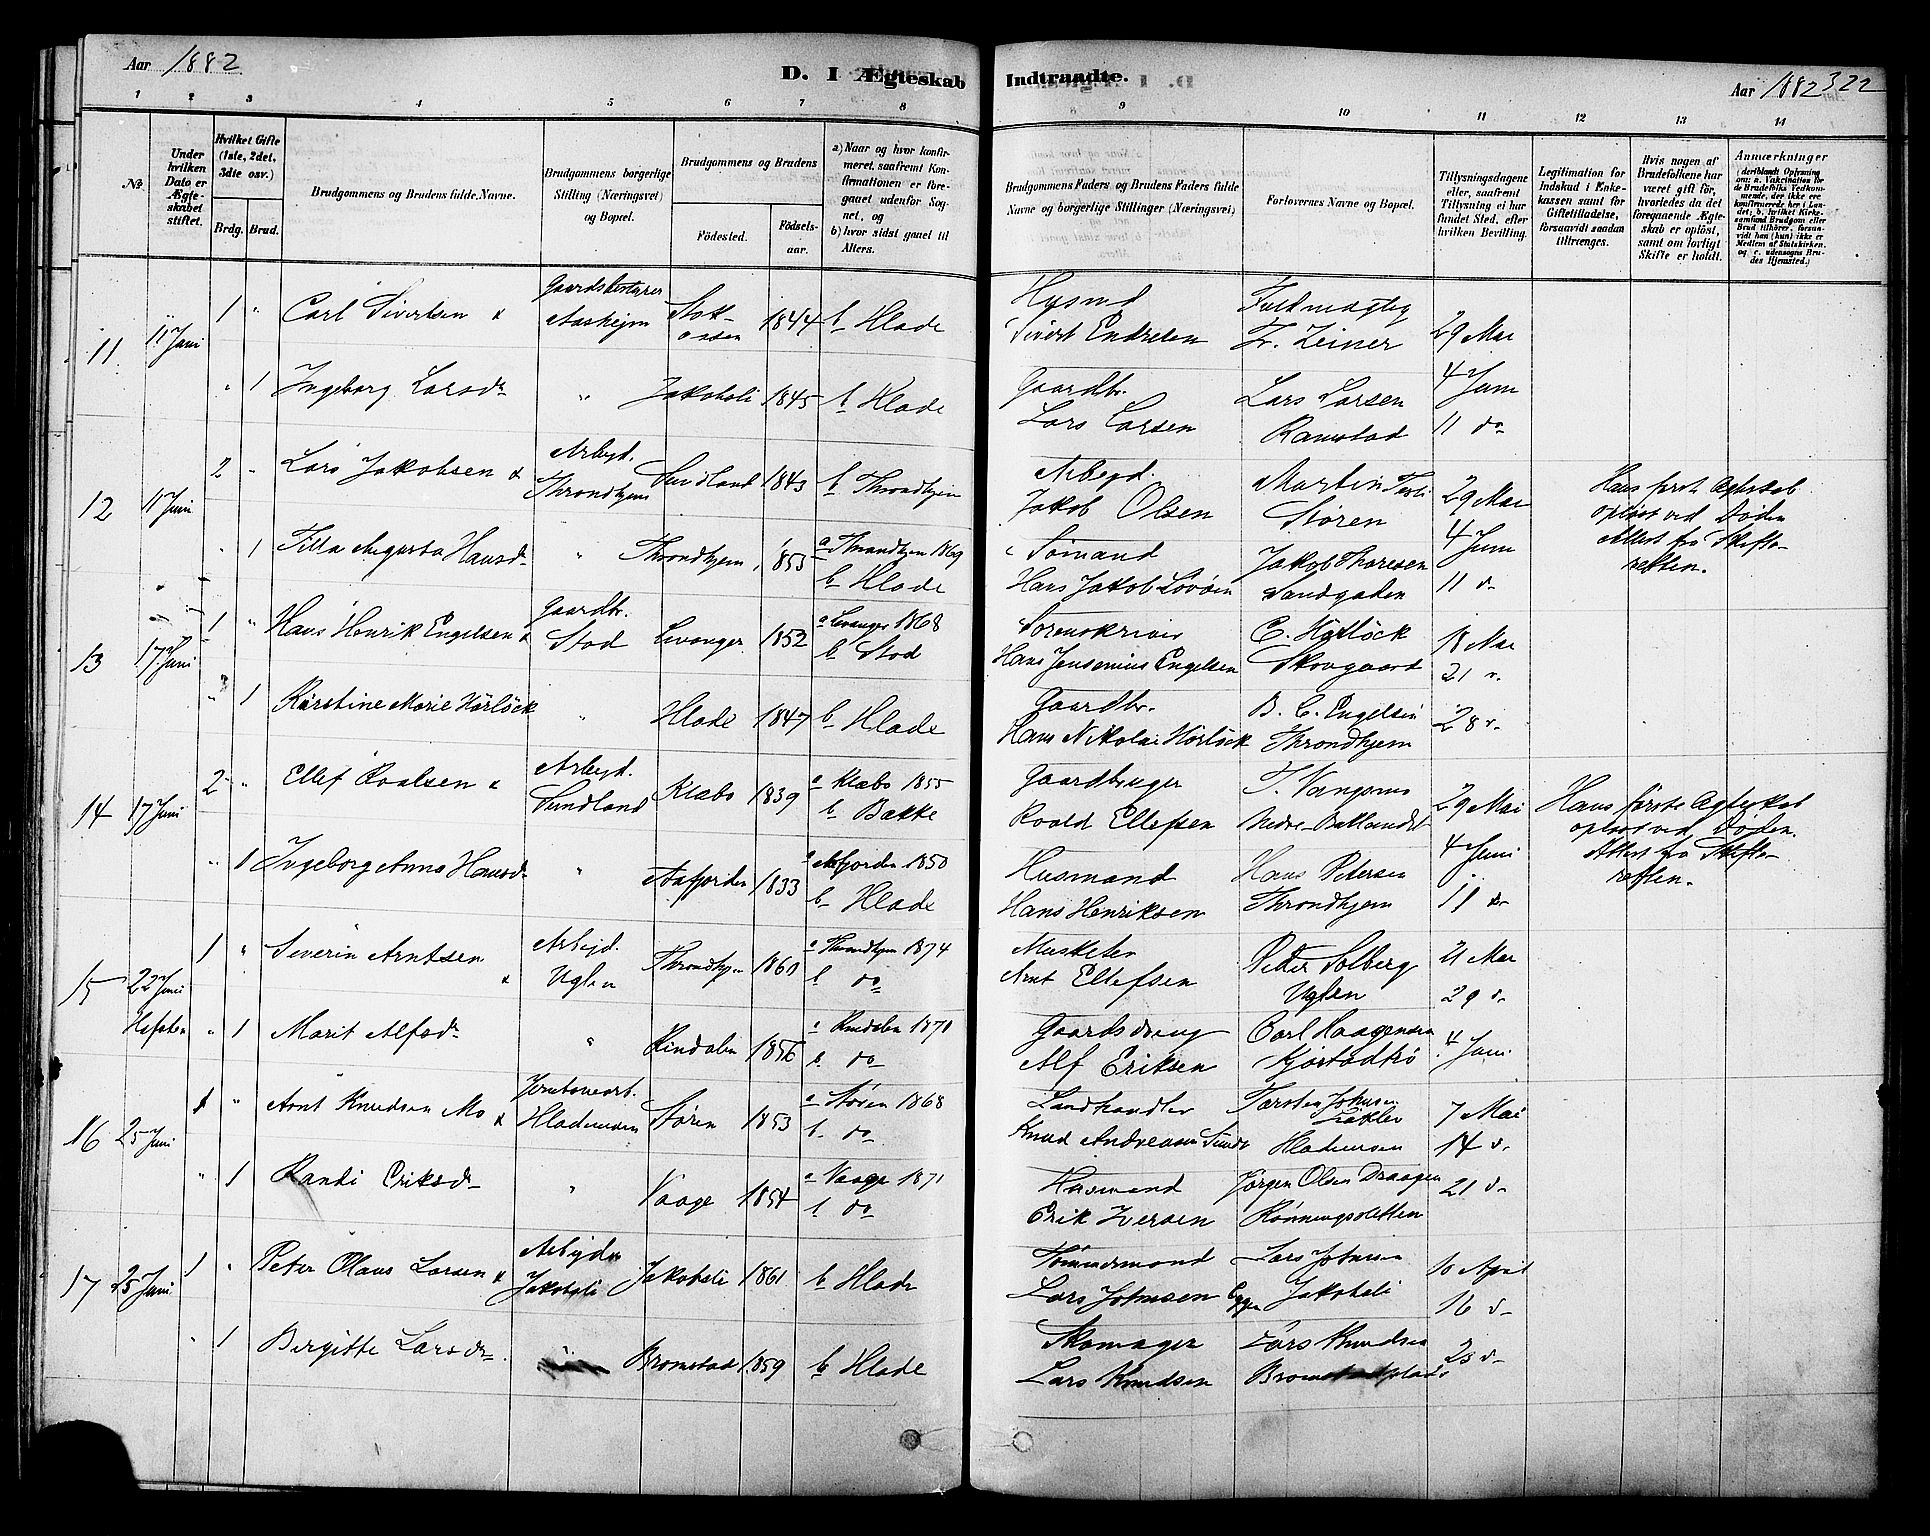 Aar 1882
D. I Ægteskab
1 2 3 4 5 6 7 8
№
Under hvilken Dato er Ægteskabet stiftet.
Hvilket Gifte (1ste, 2det, 3die osv.)
Brdg. Brud.
Brudgommens og Brudens fulde Navne.
Brudgommens borgerlige Stilling (Næringsvei) og Bopæl.
Brudgommens og Brudens
Fødested.
Fødselsaar.
a) Naar og hvor konfirmeret, saafremt Konfirmationen er foregaaet udenfor Sognet, og
b) hvor sidst gaaet til Alters.
11 11 Juni 1 " Carl Sivertsen & Gaardsbestyrer 1844 b Hlade
" 1 Ingeborg Larsdr " Jakobsli 1845 b Hlade
12 11 Juni 2 " Lars Jakobsen & Arbejd. Throndhjem Sundland 1843 b Throndhjem
" 1 Augusta Hansdr " Throndhjem 1853 a Throndhjem 1869
b Hlade
13 17 Juni 1 " Hans Henrik Engelsen & Gaardbr. Stod Levanger 1852 a Levanger 1868
b Stod
" 1 Kirstine Marie Hörlöck " Hlade 1847 b Hlade
14 17 Juni 2 " Ellef Roalsen & Arbejd. Sundland Klæbo 1839 a Klæbo 1855
b Bakke
" 1 Ingeborg Anna Hansdr " Aafjorden 1833 a Aafjorden 1850
b Hlade
15 22 Juni 1 " Severin Arntsen & Arbejd. Uglen Throndhjem 1860 a Throndhjem 1874
b do
" 1 Marit Alfsdr " Rindalen 1856 a Rindalen 1871
b do
16 25 Juni 1 " Arnt Knudsen Mo & Støren 1853 a Støren 1868
b do
" 1 Randi Eriksdr " Vaage 1854 a Vaage 1871
b do
17 25 Juni 1 " Peter Olaus Larsen & Arbejder Jakobsli Jakobsli 1861 b Hlade
" 1 Birgitte Larsdr " Bromstad 1859 b Hlade
Indtraadte.
Aar 1882 322
9 10 11 12 13 14
Brudgommens Faders og Brudens Faders fulde Navne og borgerlige Stillinger (Næringsvei)
Forlovernes Navne og Bopæl.
Tillysningsdagene eller, saafremt Tillysning ei har fundet Sted, efter hvilken Bevilling.
Legitimation for Indskud i Enkekassen samt for Giftetilladelse, forsaavidt saadan tiltrænges.
Hvis nogen af Brudefolkene har været gift før, hvorledes da det foregaaende Ægteskab er opløst, samt om lovligt Skifte er holdt.
Anmærkninger
Sivert Endresen Fuldmægtig Fr. Zeiner 29 Mai
4 Juni
Gaardbr. Lars Larsen Lars Larsen Ranstad 11 do
Arbejd. Jakob Olsen Martin Støren 29 Mai
Hans første Ægteskab opløst ved Døden Attest fra Skifteretten.
Sømand Hans Jakob Jakob Thoresen Sandgaden 4 Juni
11 d.
Sorenskriver Hans Jensenius Engelsen C. Hörlöck Skovgaard 18 Mai
21 d.
Gaardbr. Hans Nikolai Hörlöck B. C. Engelsen Throndhjem 28 d.
Gaardbruger Roald Ellefsen Nedre Baklandet 29 Mai
Hans første Ægteskab opløst ved Døden. Attest fra Skifteretten.
Husmand Hans Henriksen Hans Petersen Throndhjem 4 Juni
11 d.
Arnt Ellefsen Peder Solberg Uglen 21 Mai
29 d.
Gaardsdreng Alf Eriksen Carl Haagensen 4 Juni
Landhandler Knud Andreasen Torsten Johnsen Hlademoen 7 Mai
14 d.
Husmand Erik Iversen Jörgen Olsen Draagen Rönningsletten 21 d.
Tømmermand Lars Johnsen Lars Johnsen Jakobsli 10 April
16 d.
Skomager Lars Knudsen Lars Knudsen Bromstadplads 23 d.